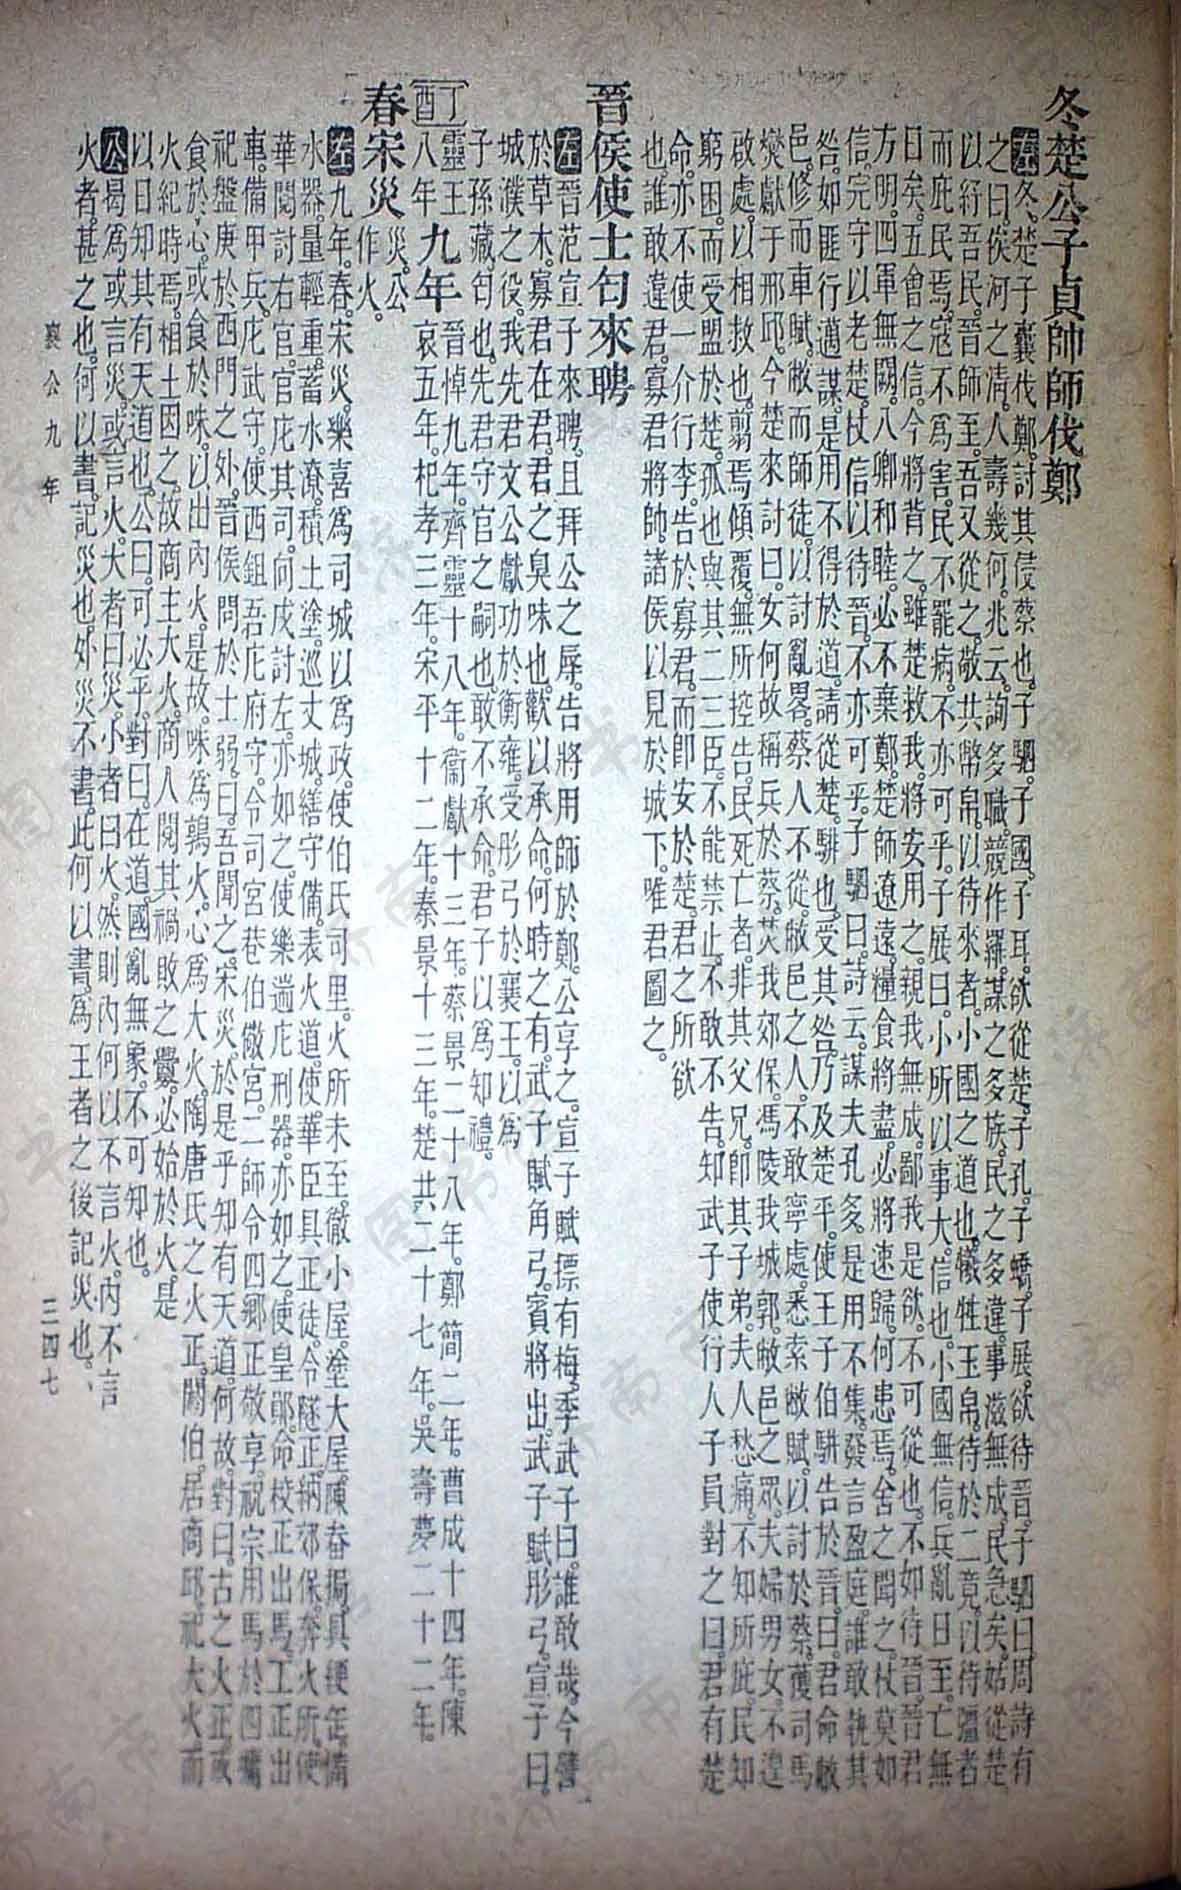 冬楚公子貞帥師伐鄭
左冬。楚子囊伐鄭。討其侵蔡也。子駟。子國。子耳。欲從楚。子孔。子蟜。子展。欲待晉。子駟曰。周詩有
之曰。俟河之淸。人壽幾何。兆云詢多。職競作羅。謀之多族。民之多違。事滋無成。民急矣。姑從楚
以紓吾民。晉師至。吾又從之。敬共幣帛。以待來者。小國之道也。犧牲玉帛。待於二竟。以待彊者
而庇民焉。寇不爲害。民不罷病。不亦可乎。子展曰。小所以事大。信也。小國無信。兵亂日至。亡無
日矣。五會之信。今將背之。雖楚救我。將安用之。親我無成。鄙我是欲。不可從也。不如待晉。晉君
方明。四軍無闕。八卿和睦。必不棄鄭。楚師遼遠。糧食將盡。必將速歸。何患焉。舍之聞之。杖莫如
信。完守以老楚。杖信以待晉。不亦可乎。子駟曰。詩云。謀夫孔多。是用不集。發言盈庭。誰敢執其
咎。如匪行邁謀。是用不得於道。請從楚。騑也。受其咎。乃及楚平。使王子伯駢告於晉。曰。君命敝
邑。修而車賦。敝而師徒。以討亂畧。蔡人不從。敝邑之人。不敢寧處。悉索敝賦。以討於蔡。獲司馬
燮。獻于邢邱。今楚來討曰。女何故稱兵於蔡。焚我郊保。馮陵我城郭。敝邑之眾。夫婦男女。不遑
啟處。以相救也。翦焉傾覆。無所控告。民死亡者。非其父兄。卽其子弟。夫人愁痛。不知所庇。民知
窮困。而受盟於楚。孤也與其二三臣。不能禁止。不敢不告。知武子使行人子員對之曰。君有楚
命。亦不使一介行李。告於寡君。而卽安於楚。君之所欲
也。誰敢違君。寡君將帥。諸侯以見於城下。唯君圖之。
晉侯使士匄來聘
左晉范宣子來聘。且拜公之辱。告將用師於鄭。公享之。宣子賦摽有梅。季武子曰。誰敢哉。今譬
於草木。寡君在君。君之臭味也。歡以承命。何時之有。武子賦角弓。賓將出。武子賦彤弓。宣子曰。
城濮之役。我先君文公獻功於衡雍。受彤弓於襄王。以爲
子孫藏。匄也。先君守官之嗣也。敢不承命。君子以爲知禮。
丁酉 靈王八年 九年 晉悼九年。齊靈十八年。衞獻十三年。蔡景二十八年。鄭簡二年。曹成十四年。陳
哀五年。杞孝三年。宋平十二年。秦景十三年。楚共二十七年。吳壽夢二十二年。
春宋災 災。公作火。
左九年。春。宋災。樂喜爲司城以爲政。使伯氏司里。火所未至。徹小屋。塗大屋。陳畚挶。具綆缶。備
水器。量輕重。蓄水潦。積土塗。巡丈城。繕守備。表火道。使華臣具正徒。令隧正納郊保。奔火所。使
華閱討右官。官庀其司。向戌討左。亦如之。使樂遄庀刑器。亦如之。使皇鄖命校正出馬。工正出
車。備甲兵。庀武守。使西鉏吾庀府守。令司宮巷伯儆宮。二師令四鄉正敬享。祝宗用馬於四墉
祀盤庚於西門之外。晉侯問於士弱。曰。吾聞之。宋災。於是乎知有天道。何故。對曰。古之火正。或
食於心。或食於咮。以出內火。是故。咮爲鶉火。心爲大火。陶唐氏之火正。閼伯。居商邱。祀大火。而
火紀時焉。相土因之。故商主大火。商人閱其禍敗之釁。必始於火。是
以日知其有天道也。公曰。可必乎。對曰。在道。國亂無象。不可知也。
公曷爲或言災。或言火。大者曰災。小者曰火。然則內何以不言火。內不言
火者。甚之也。何以書。記災也。外災不書。此何以書。爲王者之後記災也。
襄公九年
三四七